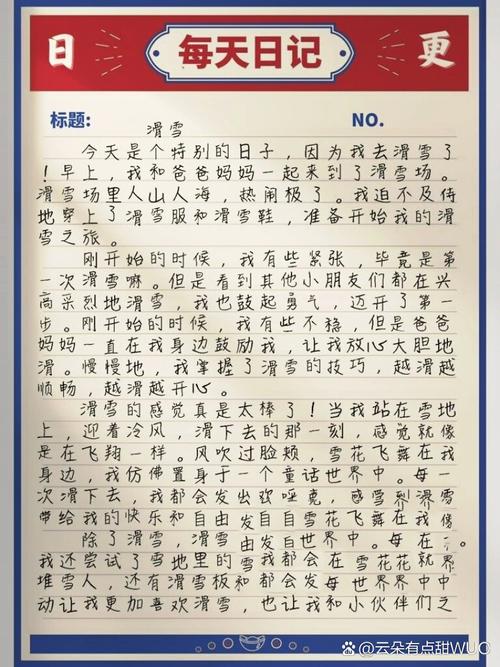 日 每天日记 更
标题: NO.
滑雪
今天是个特别的日子，因为我去滑雪了
！早上，我和爸爸妈妈一起来到了滑雪场。
滑雪场里人山人海，热闹极了。我迫不及待
地穿上了滑雪服和滑雪鞋，准备开始我的滑
雪之旅。
刚开始的时候，我有些紧张，毕竟是第
一次滑雪嘛。但是看到其他小朋友们都在兴
高采烈地滑雪，我也鼓起勇气，迈开了第一
步。刚开始的时候，我有些不稳，但是爸爸
妈妈一直在我身边鼓励我，让我放心大胆地
滑。慢慢地，我掌握了滑雪的技巧，越滑越
顺畅，越滑越开心。
滑雪的感觉真是太棒了！当我站在雪地
上，迎着冷风，滑下去的那一刻，感觉就像
是在飞翔一样。风吹过脸颊，雪花飞舞在我
身边，我仿佛置身于一个童话世界中。每一
次滑下去，我都会发出欢
带给我的快乐和自由发自自雪花飞舞在我
除了滑雪，滑雪由发自世界中。每在
我还尝试了雪地里的雪我都会在雪花花就界
堆雪人，还有滑雪板和都会发每世界界中中
动让我更加喜欢滑雪，也让我和小伙伴们之
云朵有点甜WUO